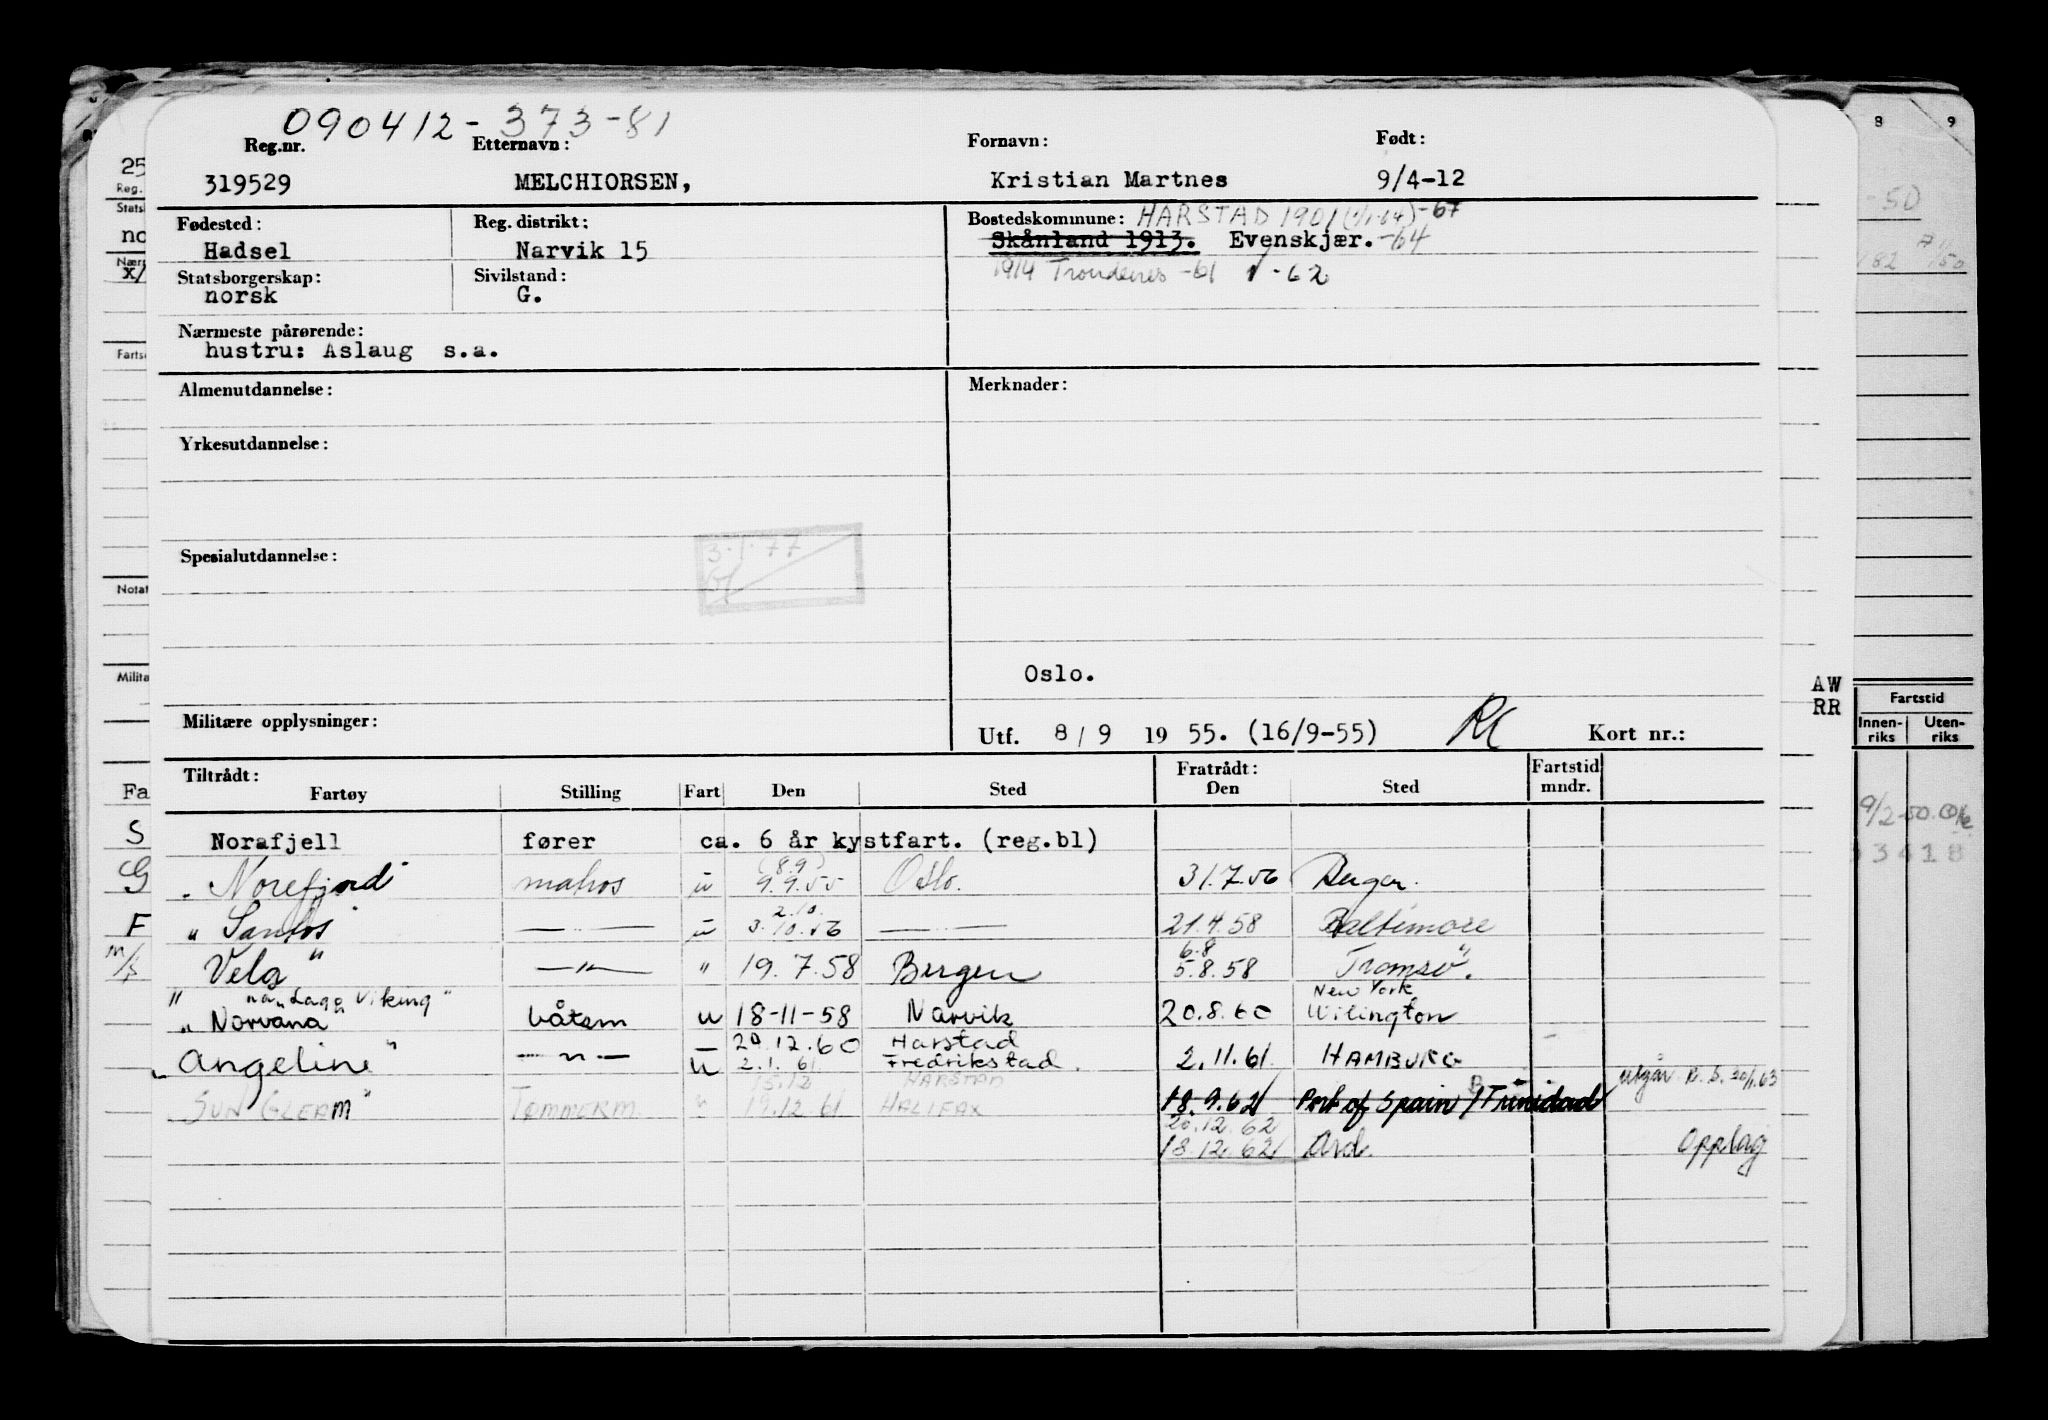 090412-373-81
Reg.nr. Etternavn: Fornavn: Født:
319529 MELCHIORSEN, Kristian Martnes 9/4-12
Fødested: Reg. distrikt: Bostedskommune: HARSTAD 1901 (1/1-64) -67
Hadsel Narvik 15 Skånland 1913. Evenskjær. -64
Statsborgerskap: Sivilstand: 1914 Trondenes -61 -62
norsk G.
Nærmeste pårørende:
hustru: Aslaug s.a.
Almenutdannelse: Merknader:
Yrkesutdannelse:
3.1.77
Spesialutdannelse:
Oslo.
Militære opplysninger: Utf. 8/9 19 55. (16/9-55) Kort nr.:
Tiltrådt: Fratrådt: Fartstid
Fartøy Stilling Fart Den Sted Den Sted mndr.
Norafjell fører ca. 6 år kystfart. (reg.bl)
(8.9)
" Norefjord" matros u 9.9.55 Oslo. 31.7.56
2.10.
" Santos" —"— u 3.10.56 —"— 21.4.58 Baltimore
6.8
Vela " —"— " 19.7.58 Bergen 5.8.58 Tromsø".
" nå "Lage Viking" New York
" Norvana" båtsm u 18-11-58 Narvik 20.8.60 Wilington
29.12.60 Harstad
" Angeline" —"— u 2.1.61 Fredrikstad. 2.11.61 HAMBURG
15.12 HARSTAD utgår R.S. 30/1.63
" SUN GLEAM" TØMMERM. " 19.12.61 HALIFAX 18.9.62 Port of Spain B/Trinidad
20.12.62
18.12.62 Opplag
AW
RR
Fartstid
Innen-riks Uten-riks
8 9
-50